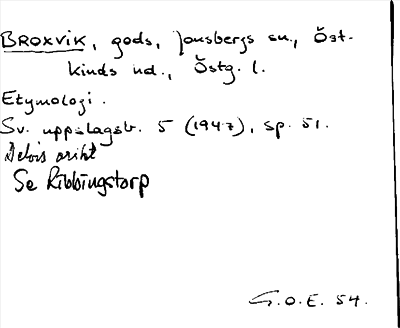 BROXVIK, gods, Jonsbergs sn., Öst-
kinds hd., Östg. l.
Etymologi.
Sv. uppslagsb. 5 (1947), sp. 51.
Delvis orikt
Se Ribbingstorp
G.O.E. 54.